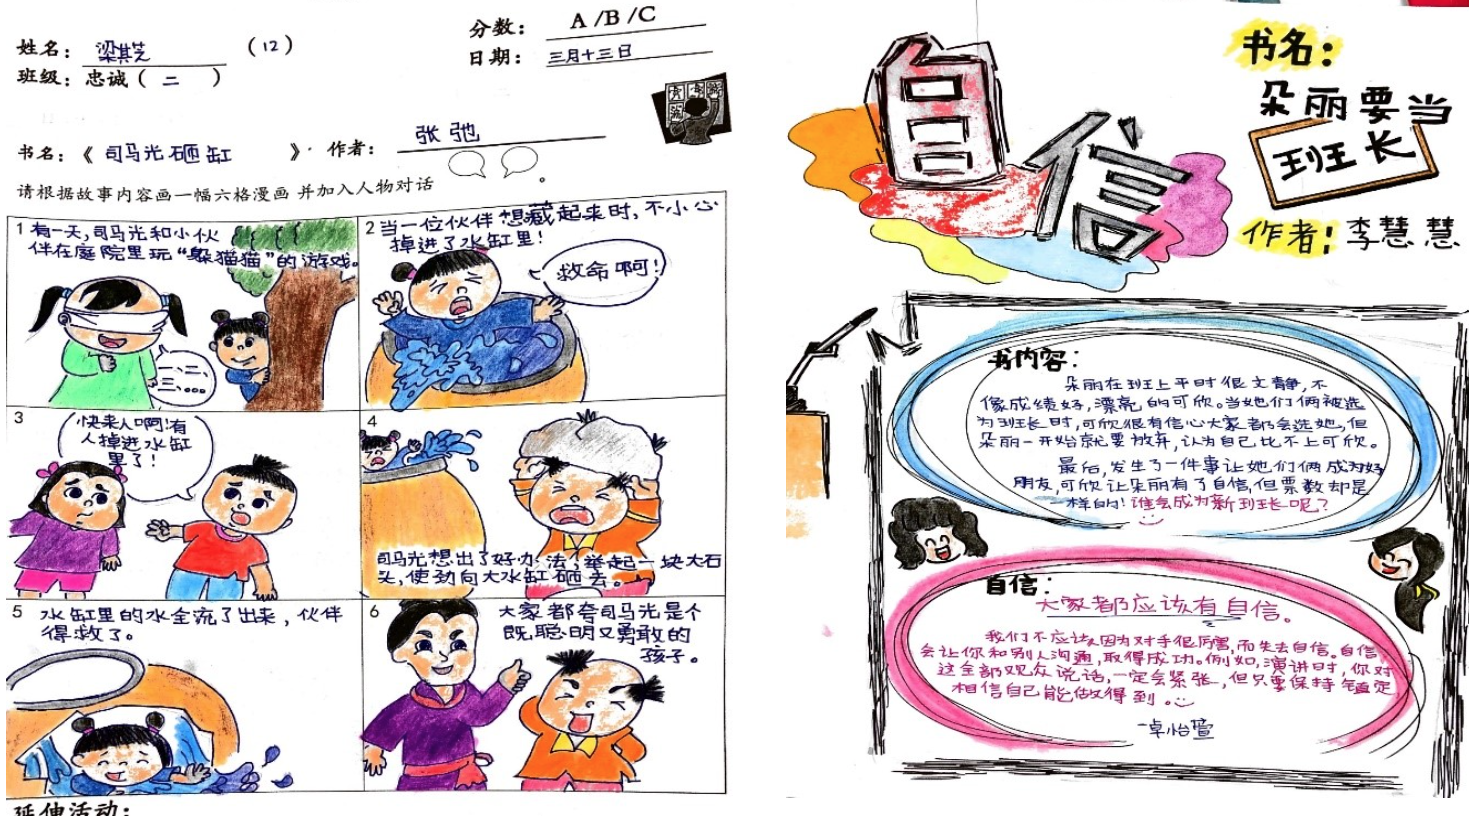 分数： A /B /C
姓名： 梁其芝 （12）
日期： 三月十三日
班级：忠诚（ 二 ）
书名：《 司马光砸缸 》· 作者： 张弛
请根据故事内容画一幅六格漫画 并加入人物对话 。
1 有一天，司马光和小伙
伴在庭院里玩“躲猫猫”的游戏。
一、二、
三、……
2 当一位伙伴想藏起来时，不小心
掉进了水缸里！
救命啊！
3
快来人啊！有
人掉进水缸
里了！
4
司马光想出了好办法，举起一块大石
头，使劲向大水缸砸去。
5 水缸里的水全流了出来，伙伴
得救了。
6 大家都夸司马光是个
既聪明又勇敢的
孩子。
延伸活动：
自信
书名：
朵丽要当
班长
作者：李慧慧
书内容：
朵丽在班上平时很文静，不
像成绩好，漂亮的可欣。当她们俩被选
为班长时，可欣很有信心大家都会选她，但
朵丽一开始就要放弃，认为自己比不上可欣。
最后，发生了一件事让她们俩成为好
朋友，可欣让朵丽有了自信，但票数却是
一样的！谁会成为新班长呢？
自信：
大家都应该有自信。
我们不应该因为对手很厉害，而失去自信。自信
会让你和别人沟通，取得成功。例如，演讲时，你对
这全部观众说话，一定会紧张，但只要保持镇定
相信自己能做得到。
-卓怡萱